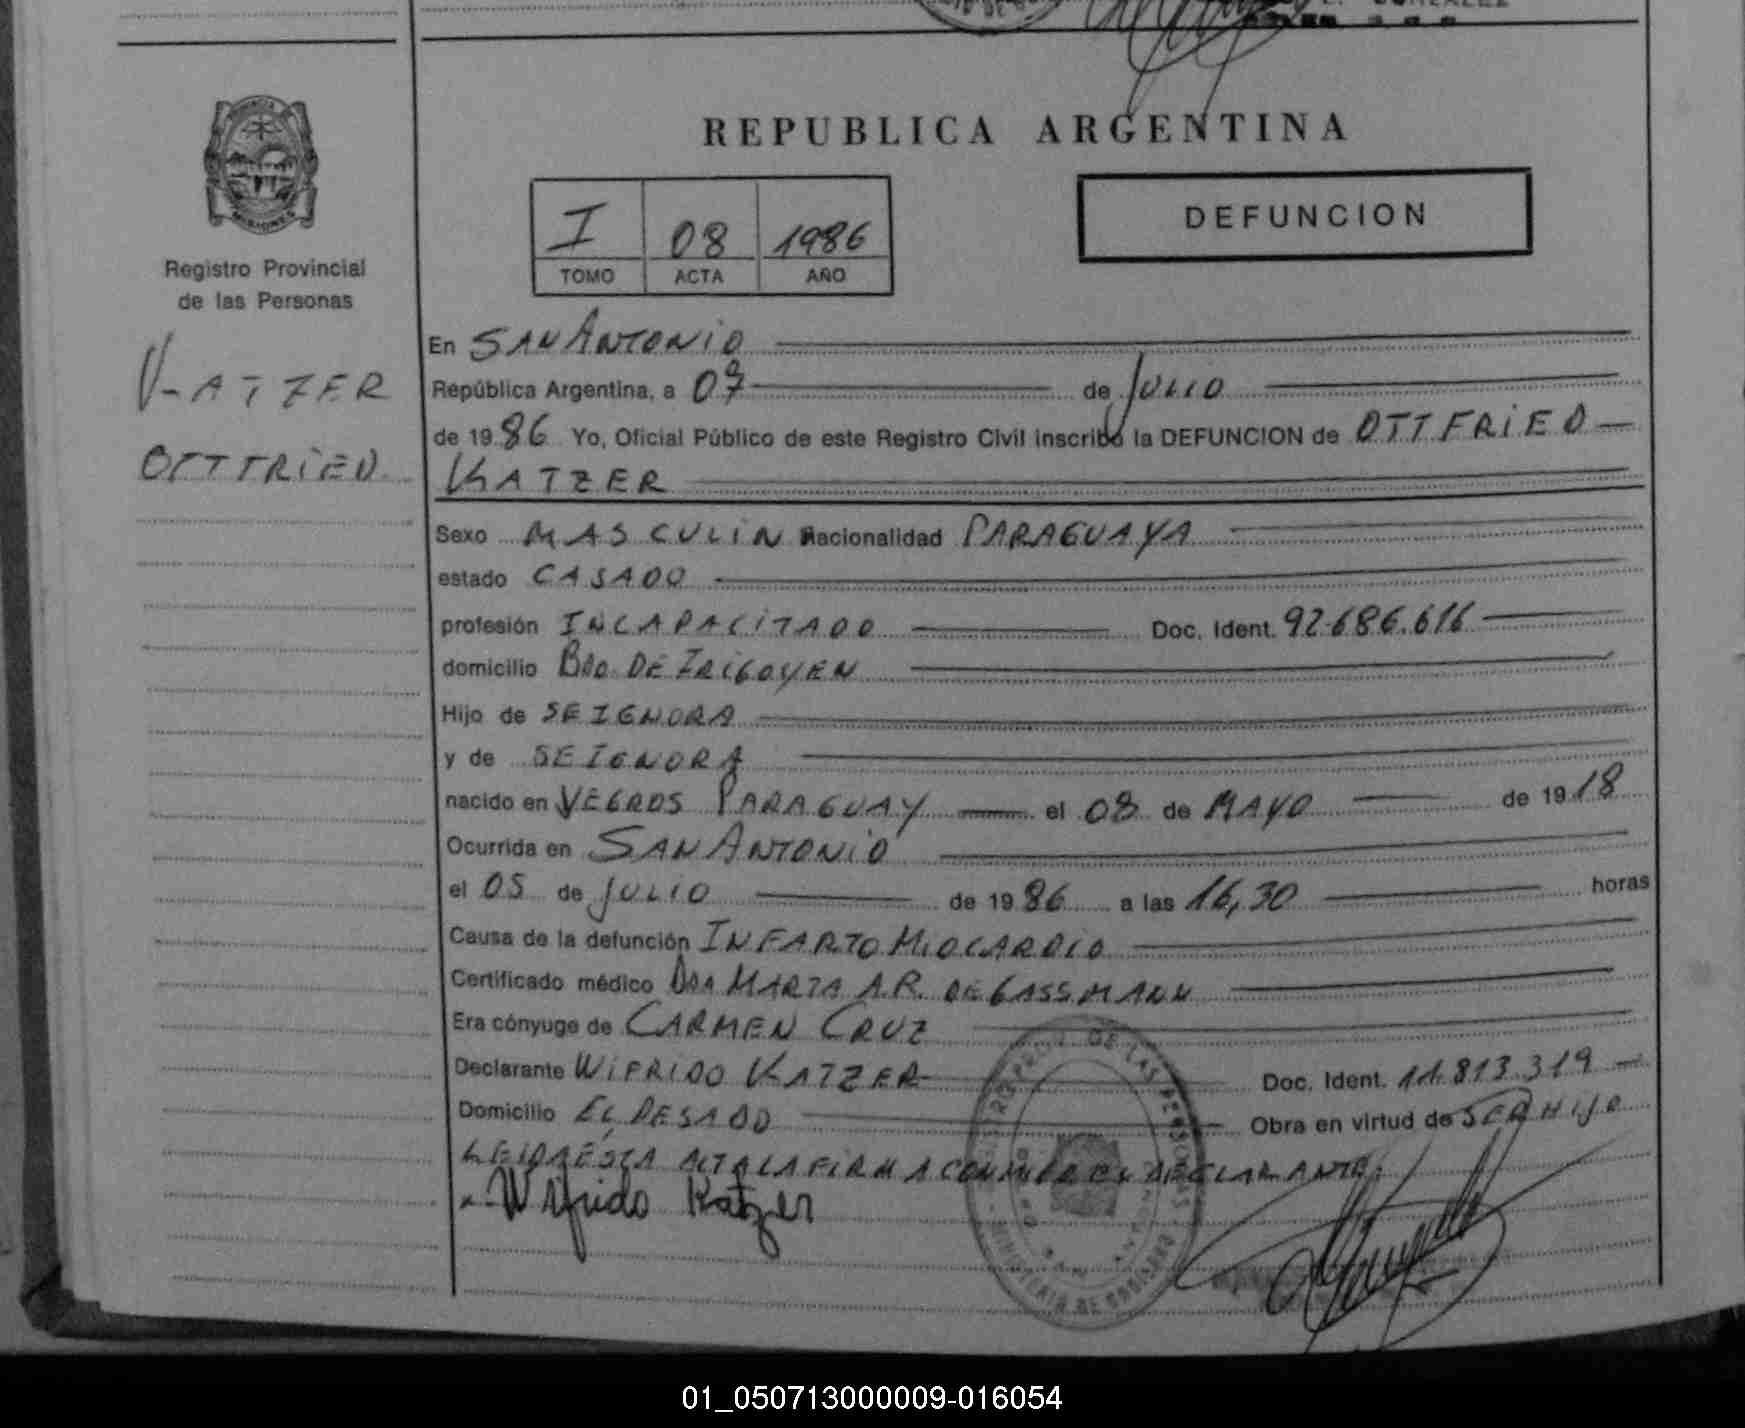 GONZALEZ
REPUBLICA ARGENTINA
MISIONES
I 08 1986
TOMO ACTA AÑO
DEFUNCION
Registro Provincial
de las Personas
KATZER
OTTFRIED
En SAN ANTONIO
República Argentina, a 07 de JULIO
de 1986 Yo, Oficial Público de este Registro Civil inscribo la DEFUNCION de OTTFRIED
KATZER
Sexo MASCULINO Nacionalidad PARAGUAYA
estado CASADO
profesión INCAPACITADO Doc. Ident. 92.686.616
domicilio BDO. DE IRIGOYEN
Hijo de SE IGNORA
y de SE IGNORA
nacido en YEGROS PARAGUAY el 08 de MAYO de 1918
Ocurrida en SAN ANTONIO
el 05 de JULIO de 1986 a las 16,30 horas
Causa de la defunción INFARTO MIOCARDIO
Certificado médico DRA MARTA A.R. DE GASSMANN
Era cónyuge de CARMEN CRUZ
Declarante WIFRIDO KATZER Doc. Ident. 11.813.319
Domicilio ELDORADO Obra en virtud de SER HIJO
LEIDA ESTA ACTA LA FIRMA CONMIGO EL DECLARANTE.
Wifrido Katzer
01_050713000009-016054